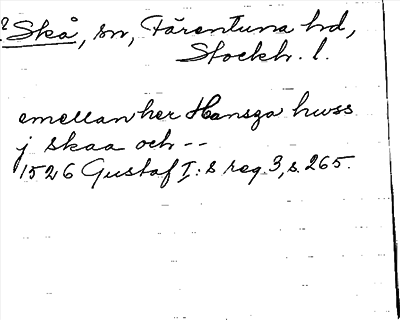 ? Skå, sn, Färentuna hd,
Stockh. l.
emellan her Hansga hwss
j skaa och --
1526 Gustaf I:s reg. 3, s. 265.